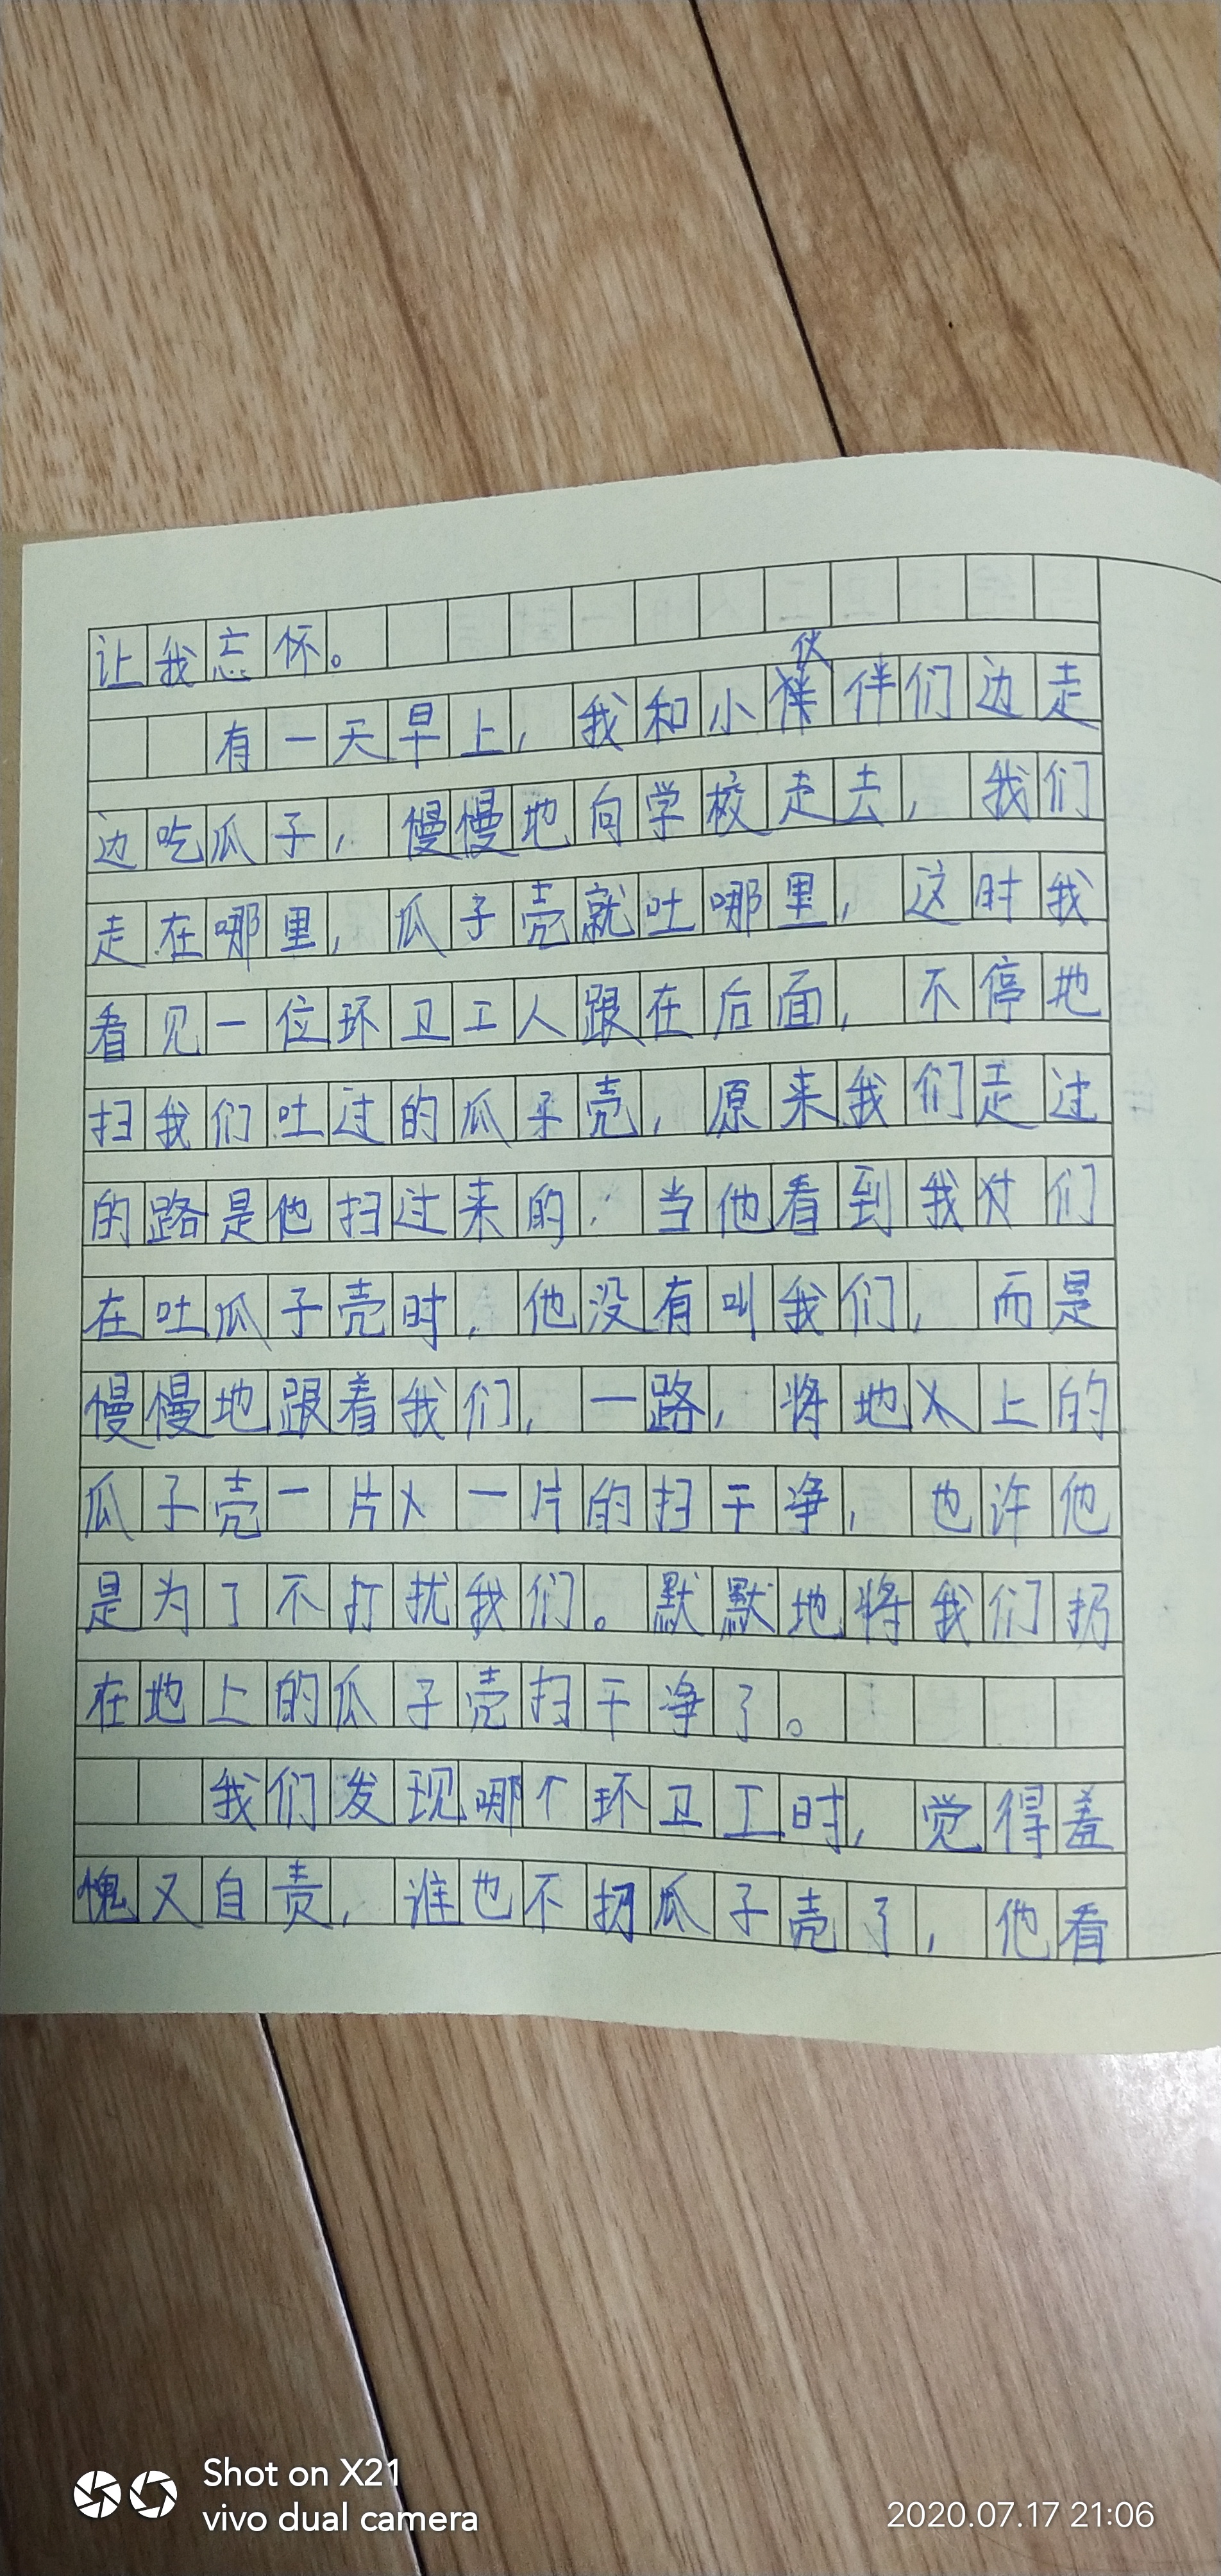 让我忘怀。
有一天早上，我和小伙伴们边走
边吃瓜子，慢慢地向学校走去，我们
走在哪里，瓜子壳就吐哪里，这时我
看见一位环卫工人跟在后面，不停地
扫我们吐过的瓜子壳，原来我们走过
的路是他扫过来的，当他看到我们
在吐瓜子壳时，他没有叫我们，而是
慢慢地跟着我们，一路，将地上的
瓜子壳一片一片的扫干净，也许他
是为了不打扰我们。默默地将我们扔
在地上的瓜子壳扫干净了。
我们发现哪个环卫工时，觉得羞
愧又自责，谁也不扔瓜子壳了，他看
Shot on X21
vivo dual camera
2020.07.17 21:06